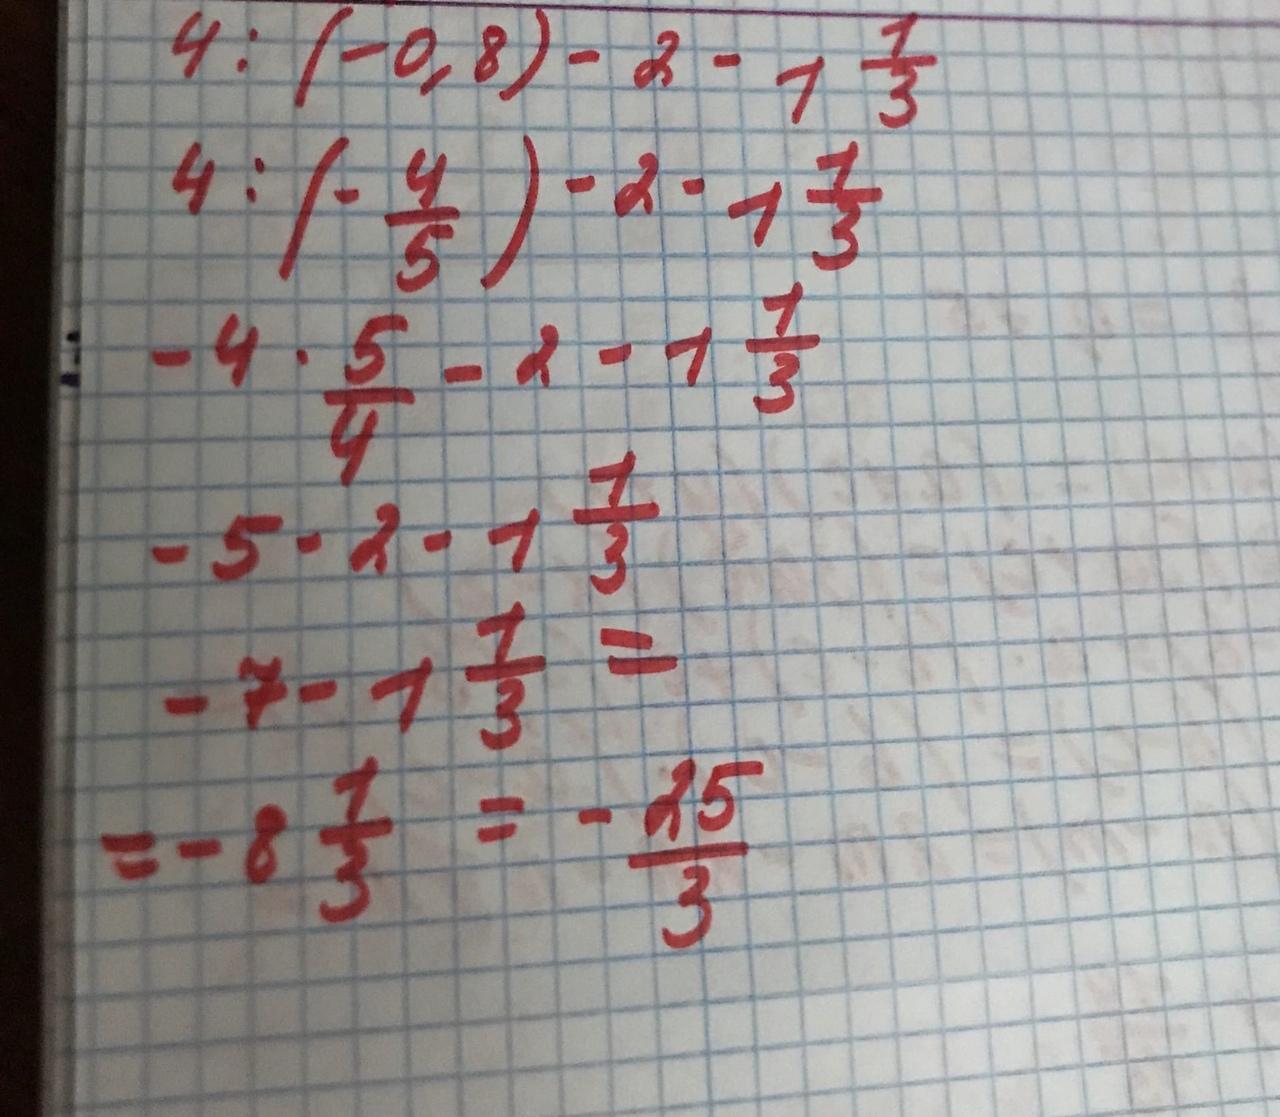 4 : (-0,8) - 2 - 1 1/3
4 : (- 4/5) - 2 - 1 1/3
- 4 · 5/4 - 2 - 1 1/3
- 5 - 2 - 1 1/3
- 7 - 1 1/3 =
= - 8 1/3 = - 25/3